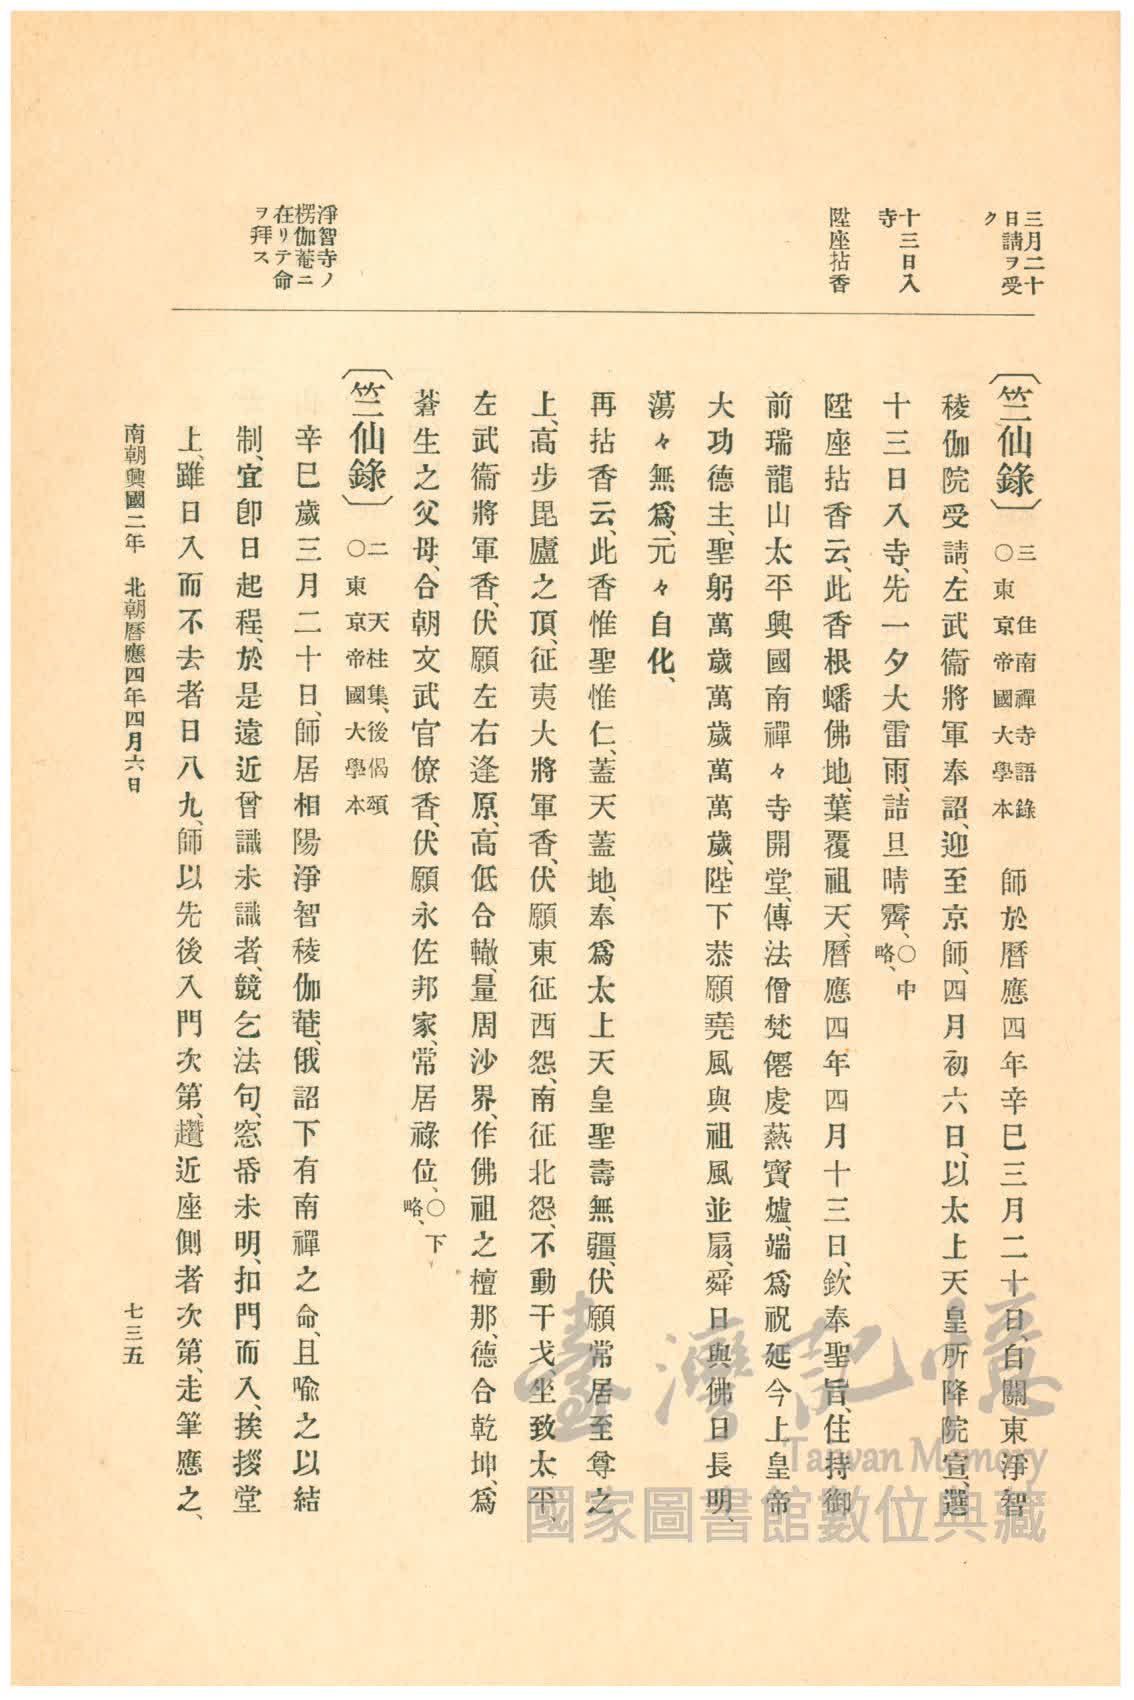 三月二十
日請ヲ受
ク
十三日入
寺
陞座拈香
淨智寺ノ
楞伽菴ニ
在リテ命
ヲ拜ス
〔竺仙錄〕三 住南禪寺語錄 ○東京帝國大學本 師於曆應四年辛巳三月二十日、自關東淨智
稜伽院受請、左武衞將軍奉詔、迎至京師、四月初六日、以太上天皇所降院宣、選
十三日入寺、先一夕大雷雨、詰旦晴霽、○中略、
陞座拈香云、此香根蟠佛地、葉覆祖天、曆應四年四月十三日、欽奉聖旨、住持御
前瑞龍山太平興國南禪々寺開堂、傳法僧梵僊虔爇寶爐、端爲祝延今上皇帝
大功德主、聖躬萬歲萬歲萬萬歲、陛下恭願堯風與祖風並扇、舜日與佛日長明、
蕩々無爲、元々自化、
再拈香云、此香惟聖惟仁、蓋天蓋地、奉爲太上天皇聖壽無疆、伏願常居至尊之
上、高步毘盧之頂、征夷大將軍香、伏願東征西怨、南征北怨、不動干戈坐致太平、
左武衞將軍香、伏願左右逢原、高低合轍、量周沙界、作佛祖之檀那、德合乾坤、爲
蒼生之父母、合朝文武官僚香、伏願永佐邦家、常居祿位、○下略、
〔竺仙錄〕二 天柱集、後偈頌 ○東京帝國大學本
辛巳歲三月二十日、師居相陽淨智稜伽菴、俄詔下有南禪之命、且喩之以結
制、宜卽日起程、於是遠近曾識未識者、競乞法句、窓昏未明、扣門而入、挨拶堂
上、雖日入而不去者日八九、師以先後入門次第、趲近座側者次第、走筆應之、
南朝興國二年 北朝曆應四年四月六日
七三五
臺灣記憶
Taiwan Memory
國家圖書館數位典藏